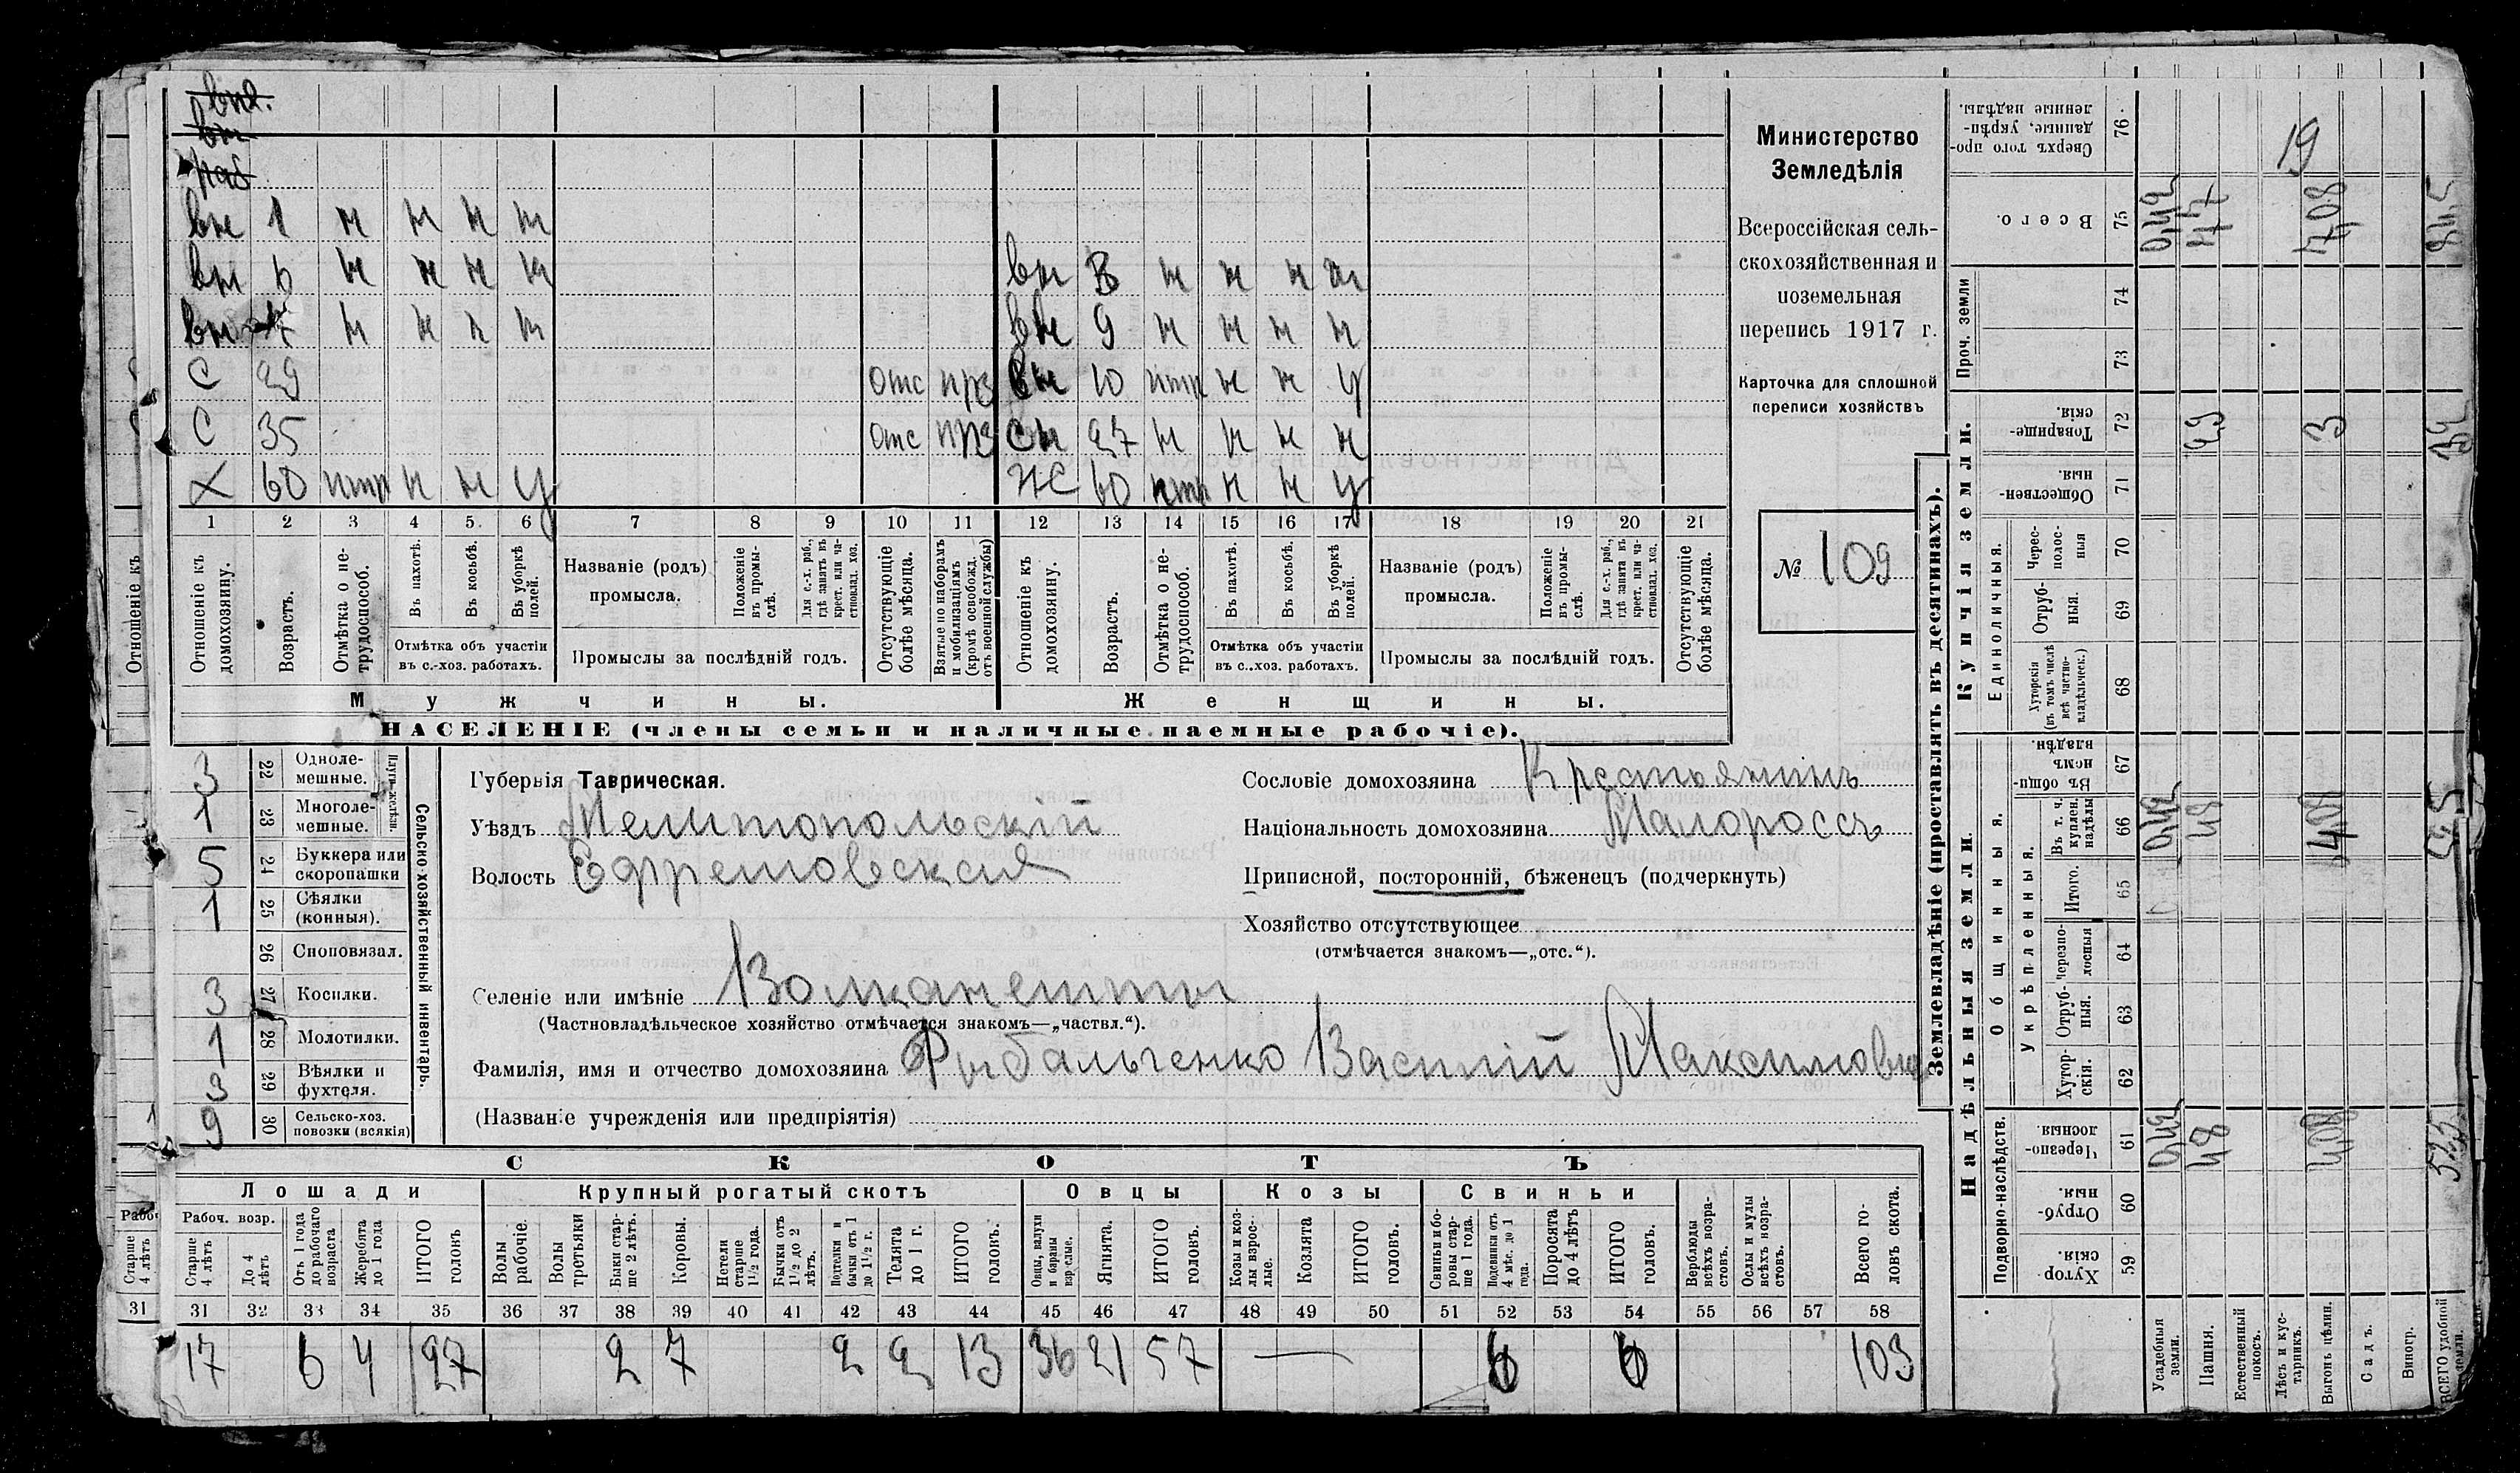 вн 1 н н н н
вн 6 н н н н
вн 3 н н н н
вн 7 н н н н
вн 9 н н н н
С 29 отс прз
вн 10 н н у
С 35 отс прз
сн 27 н н н н
Х 60 н н у
Ж 60 н н у
1 2 3 4 5. 6 7 8 9 10 11 12 13 14 15 16 17 18 19 20 21
Отношеніе къ домохозяину.
Возрастъ.
Отмѣтка о нетрудоспособ.
Въ пахотѣ.
Въ косьбѣ.
Въ уборкѣ полей.
Отмѣтка объ участіи
въ с.-хоз. работахъ.
Названіе (родъ)
промысла.
Положеніе въ промыслѣ.
Для с.-х. раб., гдѣ занятъ въ крест. или частновлад. хоз.
Промыслы за послѣдній годъ.
Отсутствующіе болѣе мѣсяца.
Взятые по наборамъ и мобилизаціямъ (кромѣ освобожд. отъ военной службы)
Отношеніе къ домохозяину.
Возрастъ.
Отмѣтка о нетрудоспособ.
Въ пахотѣ.
Въ косьбѣ.
Въ уборкѣ полей.
Отмѣтка объ участіи
въ с.-хоз. работахъ.
Названіе (родъ)
промысла.
Положеніе въ промыслѣ.
Для с.-х. раб., гдѣ занята въ крест. или частновлад. хоз.
Промыслы за послѣдній годъ.
Отсутствующіе болѣе мѣсяца.
Мужчины.
Женщины.
НАСЕЛЕНІЕ (члены семьи и наличные наемные рабочіе).
Министерство
Земледѣлія
Всероссійская сель-
скохозяйственная и
поземельная
перепись 1917 г.
Карточка для сплошной
переписи хозяйствъ
№ 109
3 22 Одноле-
мешные.
1 23 Многоле-
мешные.
5 24 Буккера или
скоропашки
1 25 Сѣялки
(конныя).
26 Сноповязал.
3 27 Косилки.
1 28 Молотилки.
3 29 Вѣялки и
фухтеля.
9 30 Сельско-хоз.
повозки (всякія)
Сельско-хозяйственный инвентарь.
Губернія Таврическая.
Уѣздъ Мелитопольскій
Волость Ефремовская
Сословіе домохозяина Крестьянинъ
Національность домохозяина Малороссъ
Приписной, посторонній, бѣженецъ (подчеркнуть)
Хозяйство отсутствующее
(отмѣчается знакомъ—„отс.“).
Селеніе или имѣніе Волканешты
(Частновладѣльческое хозяйство отмѣчается знакомъ—„частвл.“).
Фамилія, имя и отчество домохозяина Рыбальченко Василій Максимовъ
(Названіе учрежденія или предпріятія)
СКОТЪ
Лошади
Крупный рогатый скотъ
Овцы
Козы
Свиньи
Рабоч. возр.
Старше 4 лѣтъ
До 4 лѣтъ
Отъ 1 года до рабочаго возраста
Жеребята до 1 года
ИТОГО головъ
Волы рабочіе.
Волы третьяки
Быки старше 2 лѣтъ.
Коровы.
Нетели старше 1½ года.
Бычки отъ 1½ до 2 лѣтъ.
Подтелки и бычки отъ 1 до 1½ г.
Телята до 1 г.
ИТОГО головъ.
Овцы, валухи и бараны взрослые.
Ягнята.
ИТОГО головъ.
Козы и козлы взрослые.
Козлята
ИТОГО головъ.
Свиньи и боровы старше 1 года.
Подсвинки отъ 4 мѣс. до 1 года.
Поросята до 4 лѣтъ
ИТОГО головъ.
Верблюды всѣхъ возрастовъ.
Ослы и мулы всѣхъ возрастовъ.
Всего головъ скота.
31 32 33 34 35 36 37 38 39 40 41 42 43 44 45 46 47 48 49 50 51 52 53 54 55 56 57 58
17 6 4 27 2 7 2 2 13 36 21 57 — 6 6 103
Землевладѣніе (проставлять въ десятинахъ).
Купчія земли.
Надѣльныя земли.
Сверхъ того проданные, укрѣпленные надѣлы. 76
19
Всего. 75
Проч. земли 74 73
Товарищескія. 72
Общественныя. 71
Единоличныя.
Чересполосныя 70
Отрубныя. 69
Хуторскія (въ томъ числѣ всѣ частновладѣльческ.) 68
Общинныя.
Въ общинномъ владѣн. 67
Укрѣпленныя.
Въ т. ч. куплен. надѣлы 66
Итого. 65
Черезполосныя 64
Отрубныя. 63
Хуторскія. 62
Подворно-наслѣдств.
Черезполосныя. 61
Отрубныя 60
Хуторскія. 59
Усадебныя земли.
Пашня.
Естественный покосъ.
Лѣсъ и кустарникъ.
Выгонъ цѣлин.
Садъ.
Виногр.
ВСЕГО удобной земли.